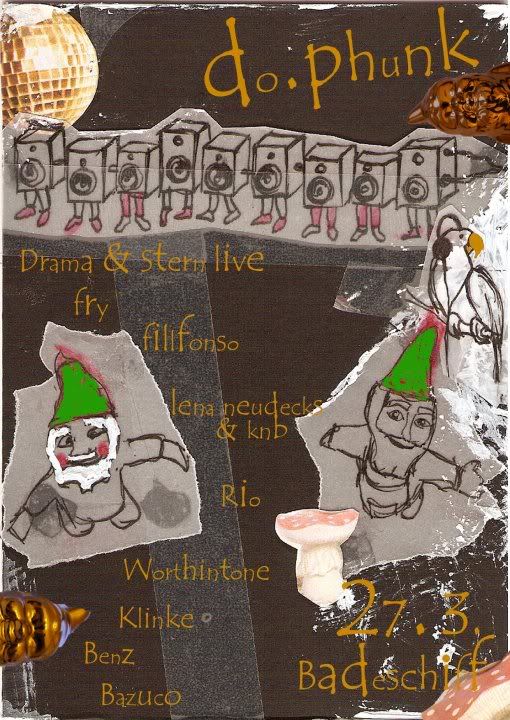 do.phunk
Drama & Stern live
fry
filifonso
lena neudecks
& knb
Rio
Worthintone
Klinke
Benz
Bazuco
27.3.
Badeschiff